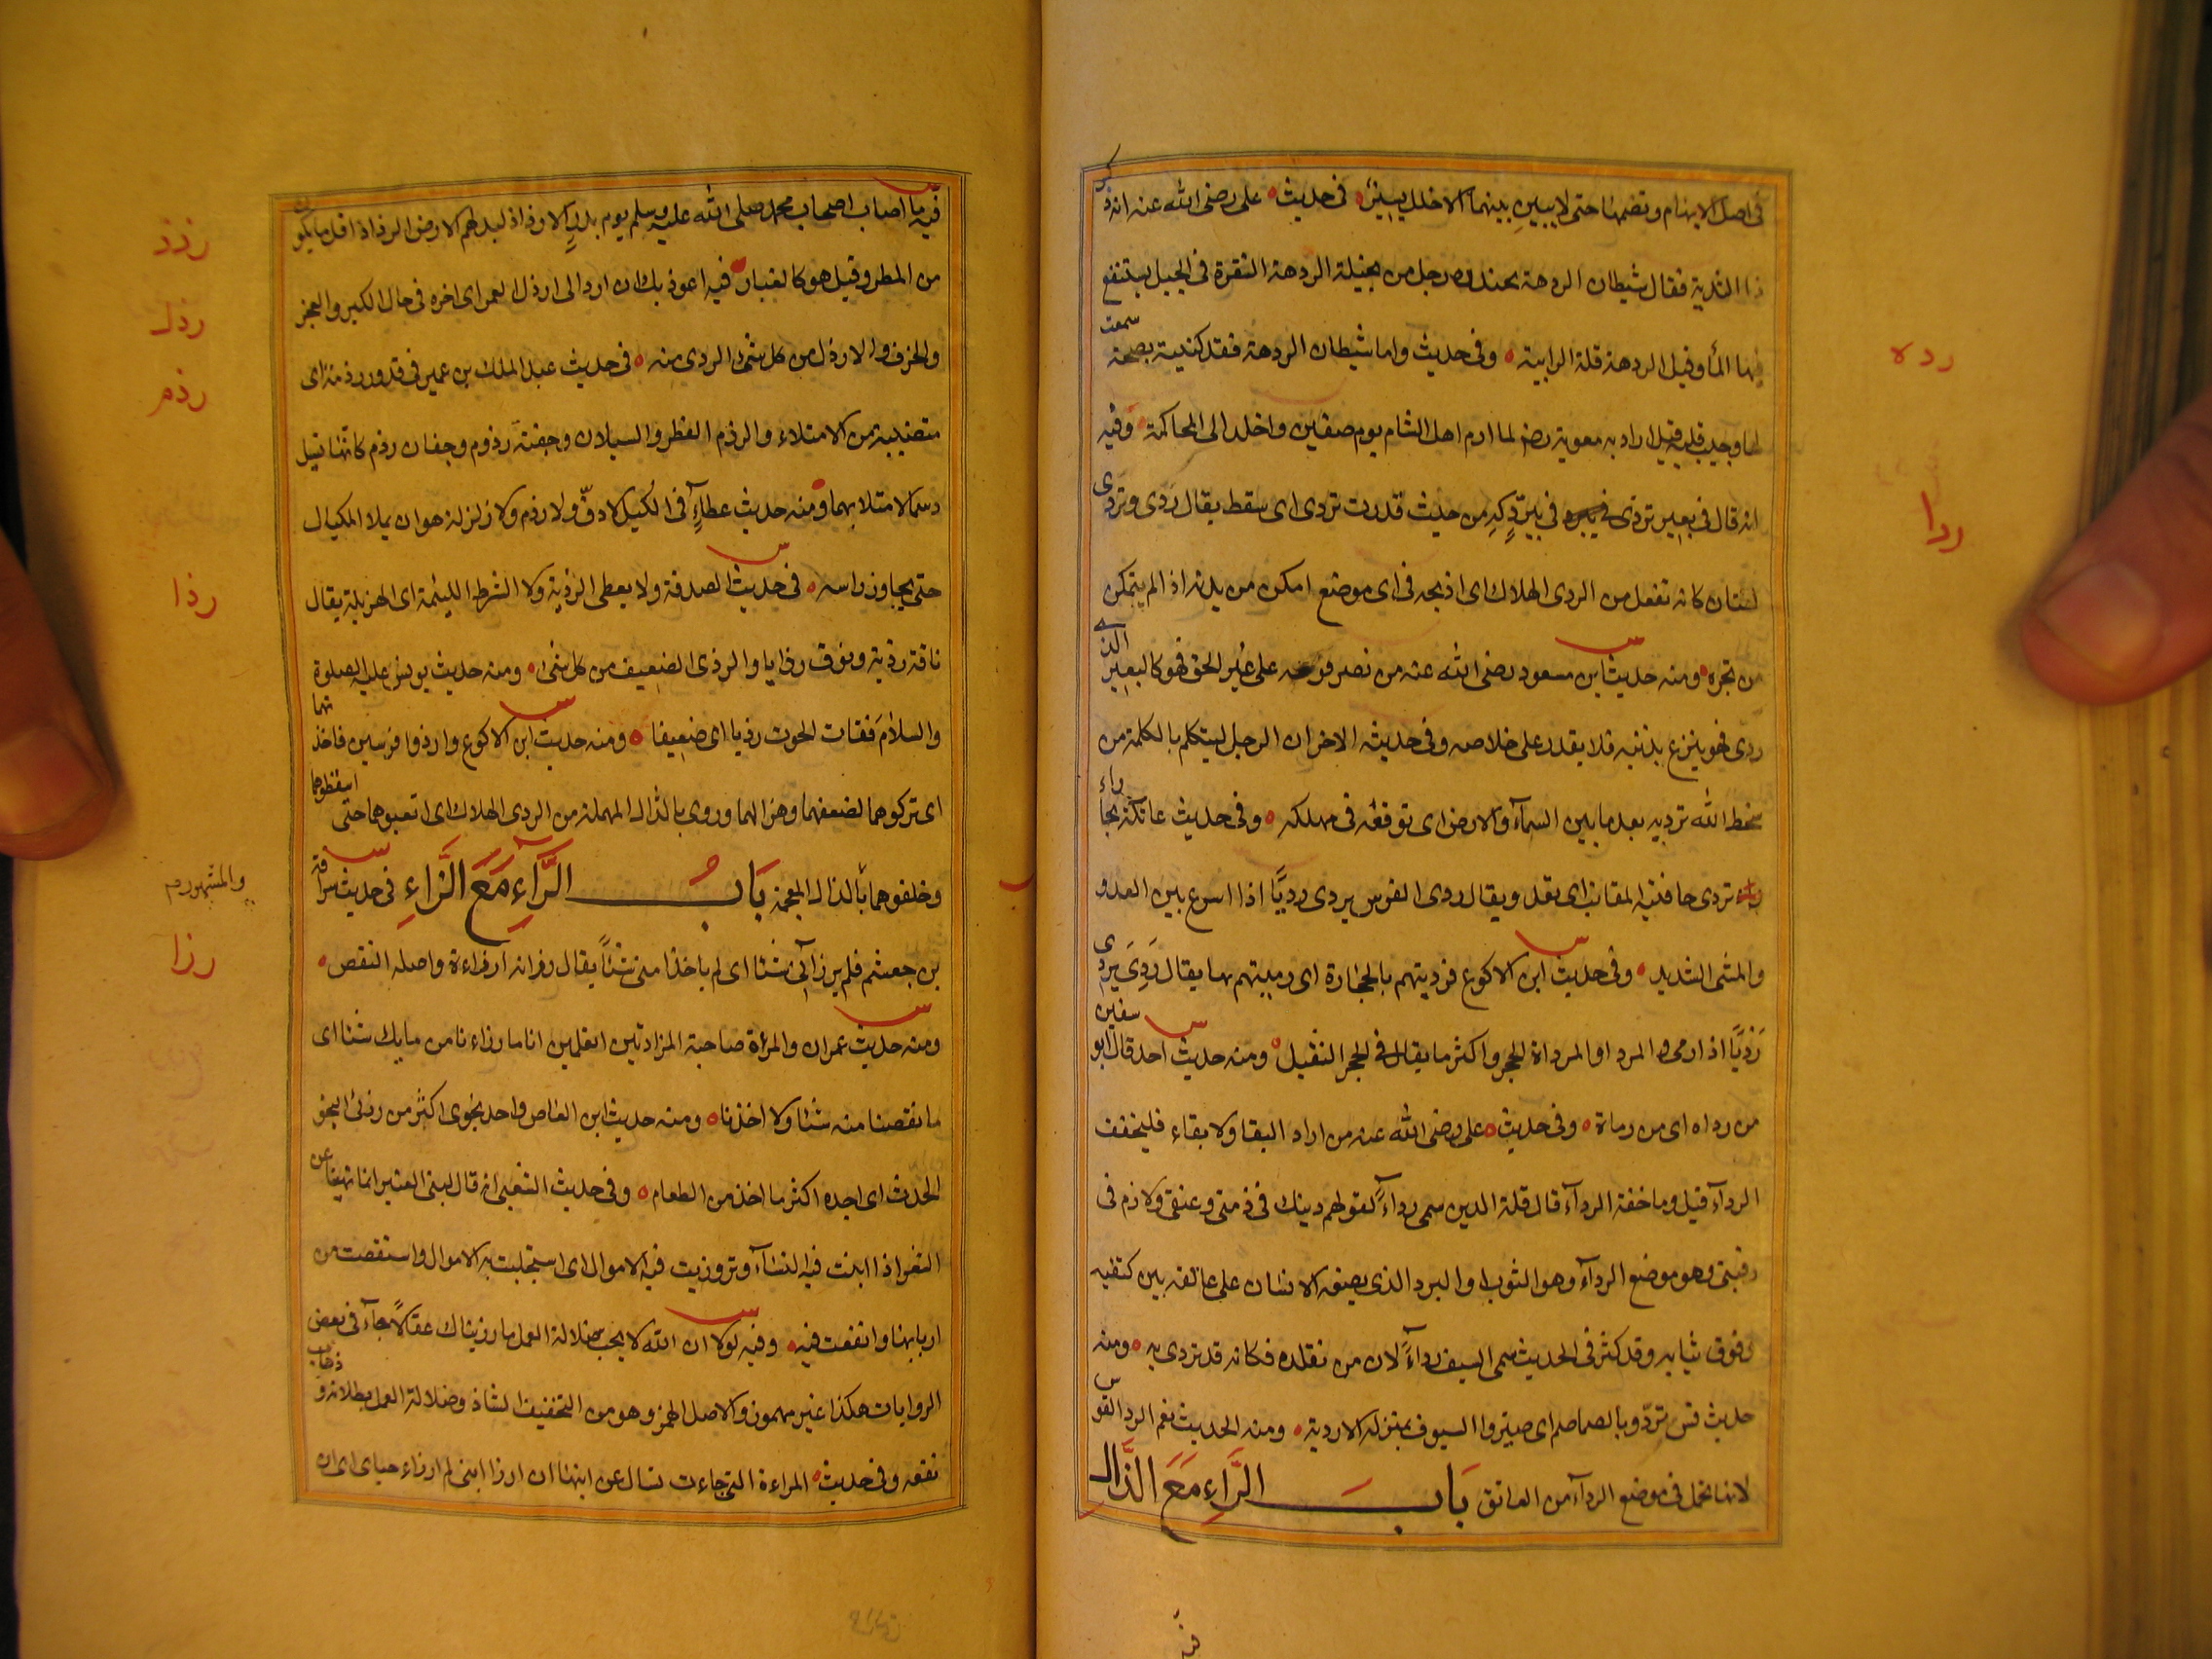 في اصل الابهام وتضمها حتى لا يبين بينهما الا خلل يسير في حديث على رضى الله عنه انه ذكر
ذا الثدية فقال شيطان الردهة يحتدره رجل من بجيلة الردهة النقرة في الجبل يستنقع
فيها المأ وقيل الردهة قلة الرابية وفى حديث واما شيطان الردهة فقد كفيته بصيحة سمعت
لها وجيب قلبه قيل اراد به معوية رضـ لما انهزم اهل الشام يوم صفين واخلد الى المحاكمة وفيه
انه قال في بعير تردى في بير ذكه من حيث قدرت تردى اى سقط يقال ردى وتردى
لغتان كانه تفعل من الردى الهلاك اى اذبحه في اى موضع امكن من بدنه اذا لم يتمكن
من نحره ومنه حديث ابن مسعود رضى الله عنه من نصر قومه على غير الحق فهو كالبعير الذى
ردى فهو ينزع بذنبه فلا يقدر على خلاصه وفى حديثه الاخر ان الرجل ليتكلم بالكلمة من
سخط الله ترديه بعد ما بين السمآء والارض اى توقعه في مهلكه وفى حديث عاتكة بجاواء
تردى حافتيه المقانب اى تعدو ويقال ردى الفرس يردى رديًا اذا اسرع بين العدو
والمشى الشديد وفى حديث ابن الاكوع فرديتهم بالحجارة اى رميتهم بها يقال رَدِىَ يردى
رَدْيًا اذا رمى والمردى والمرداة الحجر واكثر ما يقال في الحجر الثقيل ومنه حديث احد قال ابو سفين
من رداه اى من رماه وفى حديث على رضى الله عنه من اراد البقا ولا بقاء فليخفف
الردآء قيل وما خفة الردآء قال قلة الدين سمى ردآءً لقولهم دينك في ذمتى وعنقى ولازم في
رقبتى وهو موضع الردآء وهو الثوب او البرد الذى يضعه الانسان على عاتقه بين كتفيه
وفوق ثيابه وقد كثر في الحديث سمى السيف ردآءً لان من تقلده فكانه قد تردى به ومنه
حديث قس تردّوا بالصماصم اى صيروا السيوف بمنزلة الاردية ومنه الحديث نعم الردا القوس
لانها تحمل في موضع الردآء من العاتق بَابُ الرَّاءِ مَعَ الذَّالِ
رده
ردا
فيه
فيه ما اصاب اصحاب محمد صلى الله عليه وسلم يوم بدرٍ الا رذاذ لبد لهم الارض الرذاذ اقل ما يكون
من المطر وقيل هو كالغبار فيه اعوذ بك ان ارد الى ارذل العمر اى اخره في حال الكبر والعجز
والخرف والارذل من كل شئ الردى منه في حديث عبد الملك بن عمير في قدور رذمة اى
متصببة من الامتلاء والرذم القطر والسيلان وجفنة رذوم وجفان رذم كانها تسيل
دسما لامتلائها ومنه حديث عطآء في الكيل لا دقّ ولا رذم ولا زلزلة هو ان يملا المكيال
حتى يجاوز راسه في حديث الصدقة ولا يعطى الرذية ولا الشرط اللئيمة اى الهزيلة يقال
ناقة رذية ونوق رذايا والرذى الضعيف من كل شئ ومنه حديث يونس عليه الصلوة
والسلام فقاءت الحوت رذيا اى ضعيفا ومنه حديث ابن الاكوع وارذوا فرسين فاخذتهما
اى تركوهما لضعفهما وهزالهما وروى بالدال المهملة من الردى الهلاك اى اتعبوهما حتى اسقطوهما
وخلفوهما بالذال المعجمة بَابُ الرَّاءِ مَعَ الزَّاءِ في حديث سراقة
بن جعشم فلم يرزآنى شئا اى لم ياخذا منى شئاً يقال رزاته ارزاءه واصله النقص
ومنه حديث عمران والمرءة صاحبة المزادتين اتعلمين انا ما رزاءنا من مايك شئا اى
ما نقصنا منه شئا ولا اخذنا ومنه حديث ابن العاص واجد نجوى اكثر من رزئى النجو
الحدث اى اجده اكثر ما اخذ من الطعام وفى حديث الشعبى انه قال لبنى العنبر انما نهينا عن
الشعر اذا ابنت فيه النسآء وتروزيت فيه الاموال اى استجلبت به الاموال واستنقصت من
اربابها وانفقت فيه وفيه لولا ان الله لا يحب ضلالة العمل ما رزيناك عقالاً جآء في بعض
الروايات هكذا غير مهموز والاصل الهمز وهو من التخفيف الشاذ وضلالة العمل بطلانه وذهاب
نفعه وفى حديث المراءة التى جاءت تسال عن ابنها ان ارزا ابنى لم ارزاء حياى اى ان
رذذ
رذل
رذم
رذا
والمشهور
رزا